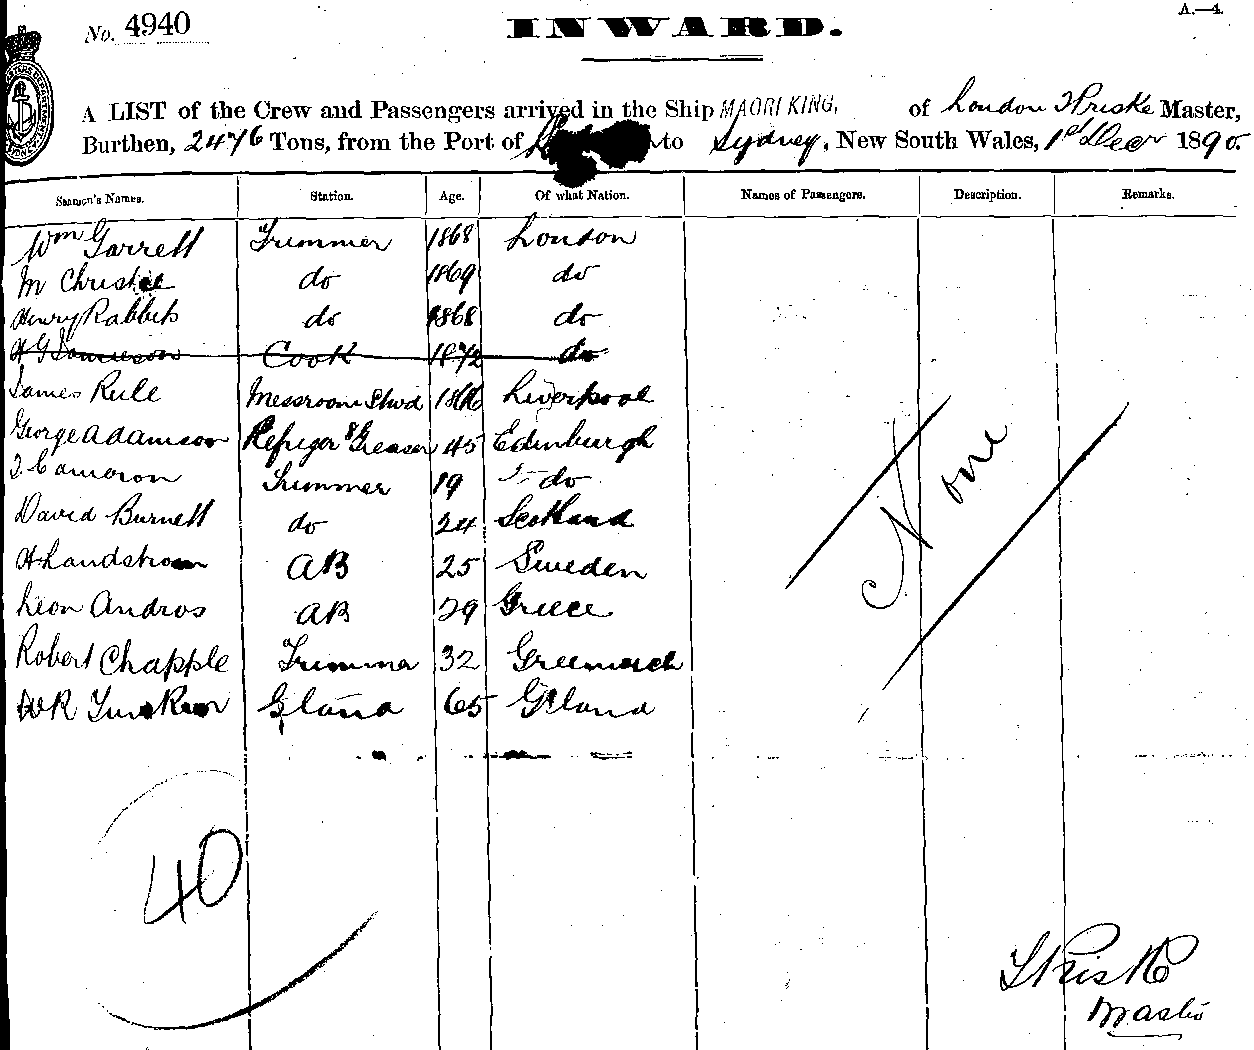 A.—4.
No. 4940 INWARD.
A LIST of the Crew and Passengers arrived in the Ship MAORI KING, of London Master,
Burthen, 2476 Tons, from the Port of to Sydney, New South Wales, 1st Decr 1890.
Seamen's Names. Station. Age. Of what Nation. Names of Passengers. Description. Remarks.
Wm Garrett Trimmer 1868 London
M Christie do 1869 do
Henry Rabbits do 1868 do
H G Jamieson Cook 1872 do
James Rule Messroom Stwd 1866 Liverpool
George Adamson Refriger & Greaser 45 Edinburgh
J Cameron Trimmer 19 do
David Burnett do 24 Scotland
H Landstrom AB 25 Sweden
Leon Andros AB 29 Greece
Robert Chapple Trimmer 32 Greenwich
WR 65
None
40
Master